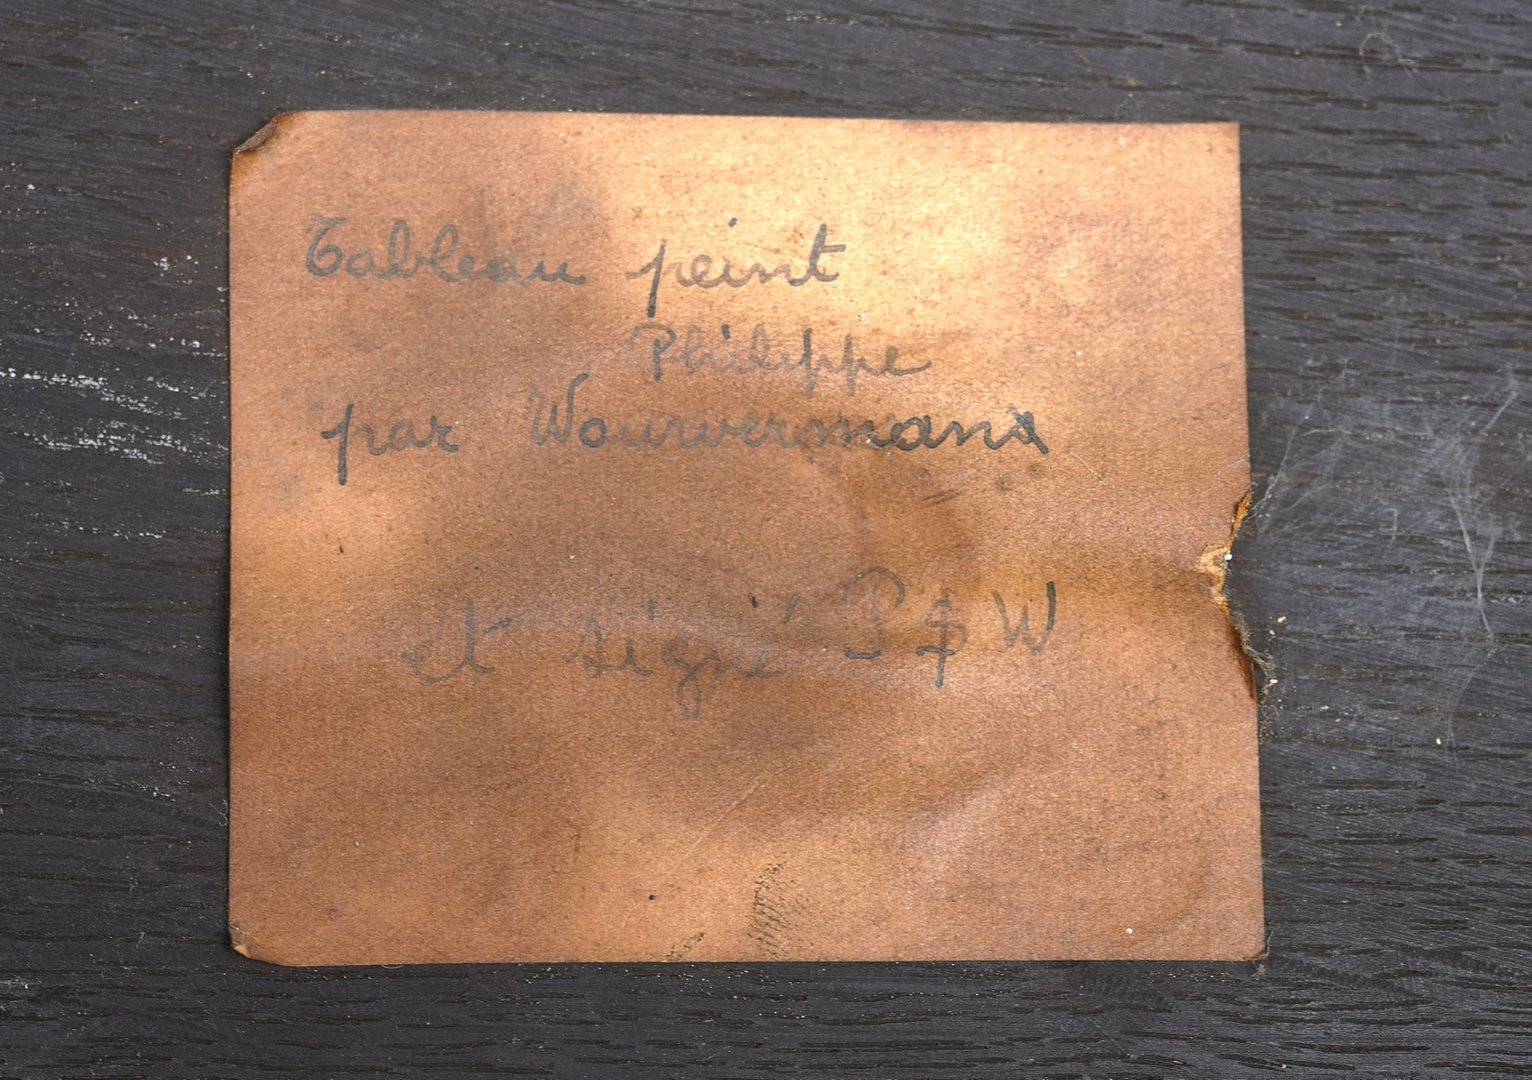 Tableau peint
Philippe
par Wouwerman
et signé P S W